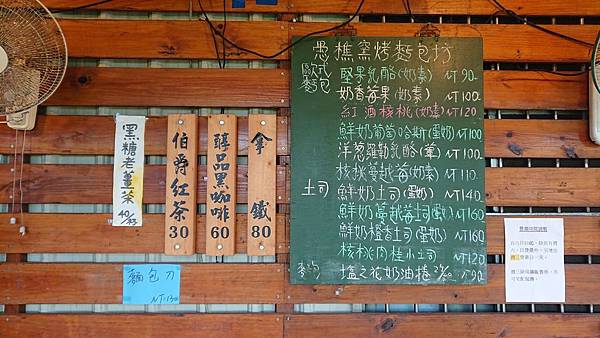 愚樵窯烤麵包坊
歐式
麵包
堅果乳酪(奶素) NT90
奶香莓果(奶素) NT100
紅酒核桃(奶素) NT120
鮮奶葡萄哈斯(蛋奶) NT100
洋蔥羅勒乳酪(葷) NT100
核桃蔓越莓(奶素) NT110
土司
鮮奶土司(蛋奶) NT140
鮮奶蔓越莓土司(蛋奶) NT160
鮮奶橙香土司(蛋奶) NT160
核桃肉桂小土司 NT120
塩之花奶油捲 NT90
黑糖老薑茶
伯爵紅茶
30
醇品黑咖啡
60
拿鐵
80
麵包刀
NT130